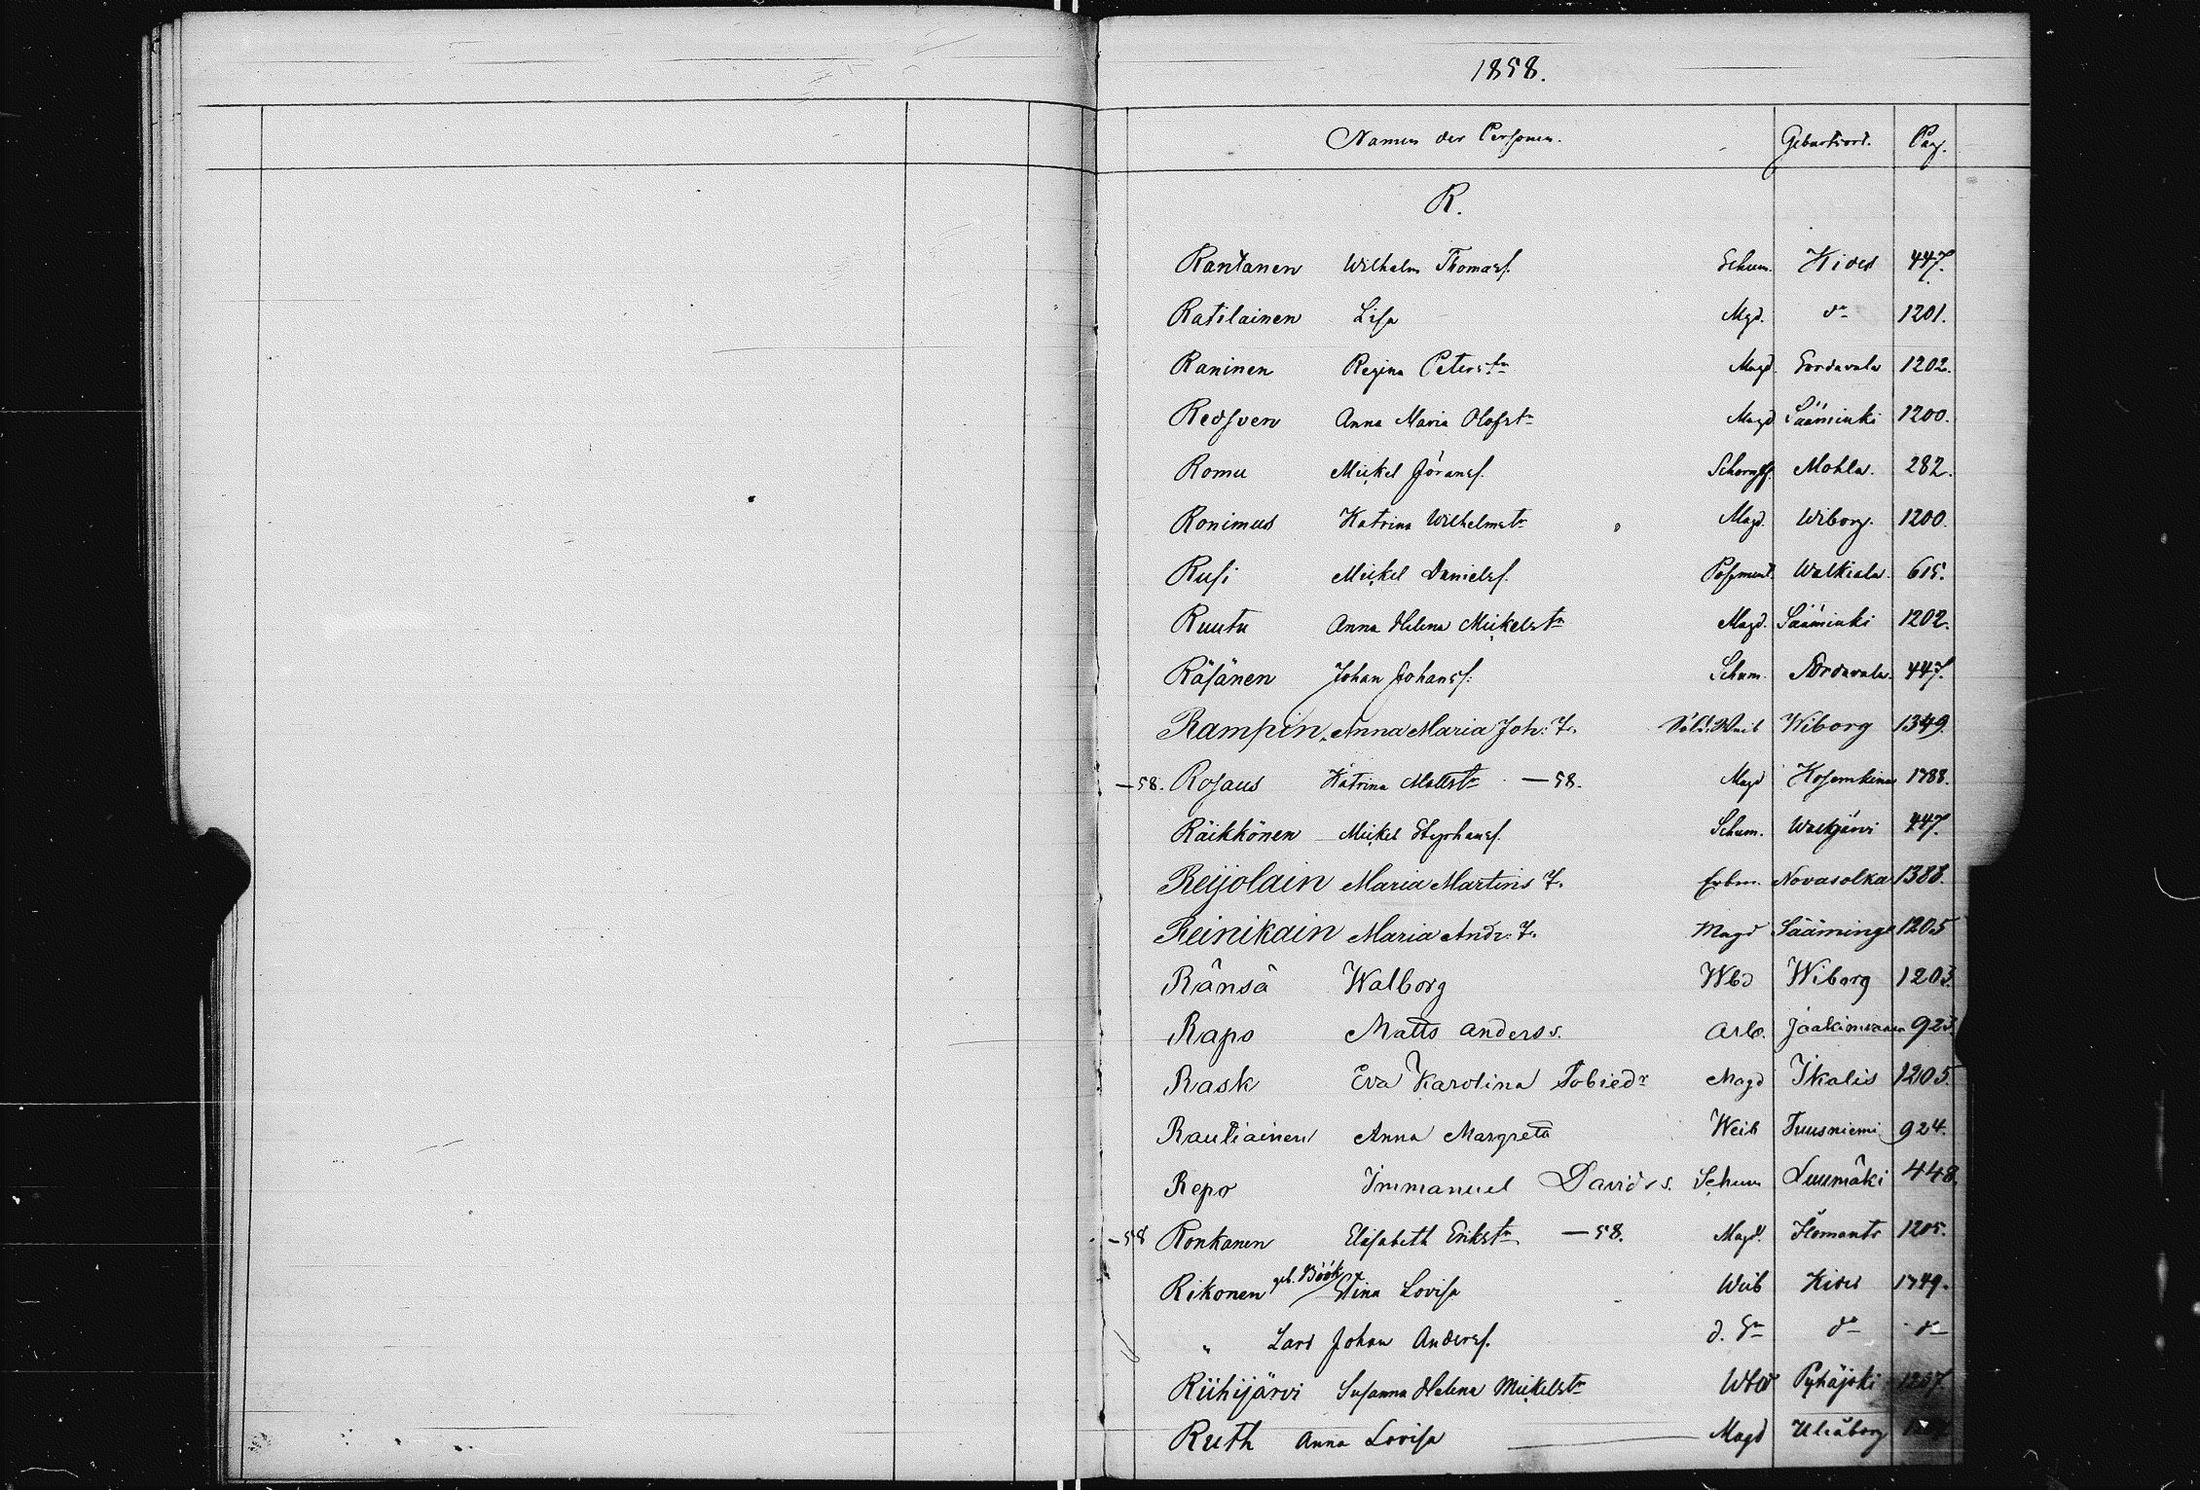 1858.
Namen der Personen. Geburtsort. Pag.
R.
Rantanen Wilhelm Thomass. Schum. Kides 447.
Ratilainen Lisa Mgd. do 1201.
Raninen Regina Peterstr Magd. Sordavala 1202.
Redsven Anna Maria Olofstr Magd Sääminki 1200.
Romu Mickel Göranss. Mohla. 282.
Ronimus Katrina Wilhelmstr Magd. Wiborg. 1200.
Rusi Mickel Daniels. Posament. Walkiala. 615.
Ruutu Anna Helena Mickelstr Magd. Sääminki 1202.
Räsänen Johan Johanss. Schum. Sordavala. 447.
Rampin. Anna Maria Joh: T. Sold. Weib Wiborg 1349.
—58. Rosaus Katrina Mattstr —58. Magd Kosemkina 1788.
Räikkönen Mickel Stephanss. Schum. Walkjärvi 447.
Reijolain Maria Martins T. Erbm. Novasolka 1388.
Reinikain Maria Andr: T. Magd Sääminge 1205
Ränsä Walborg Wbd Wiborg 1203.
Rapo Matts anderss. Arb. Jaakimvaara 923.
Rask Eva Karolina Tobiedr Magd Ikalis 1205.
Rautiainen Anna Margreta Weib Tuusniemi 924.
Repo Immanuel Davids s. Schum Luumäki 448.
—58 Ronkanen Elisabeth Erikstr —58. Magd. Ilomants 1205.
Rikonen geb. Böök Stina Lovisa Weib Kides 1749.
" Lars Johan Anderss. d. Sn do do
Riihijärvi Susanna Helena Mickelstr Wbd Pyhäjoki 1207
Ruth Anna Lovisa Magd Uleåborg